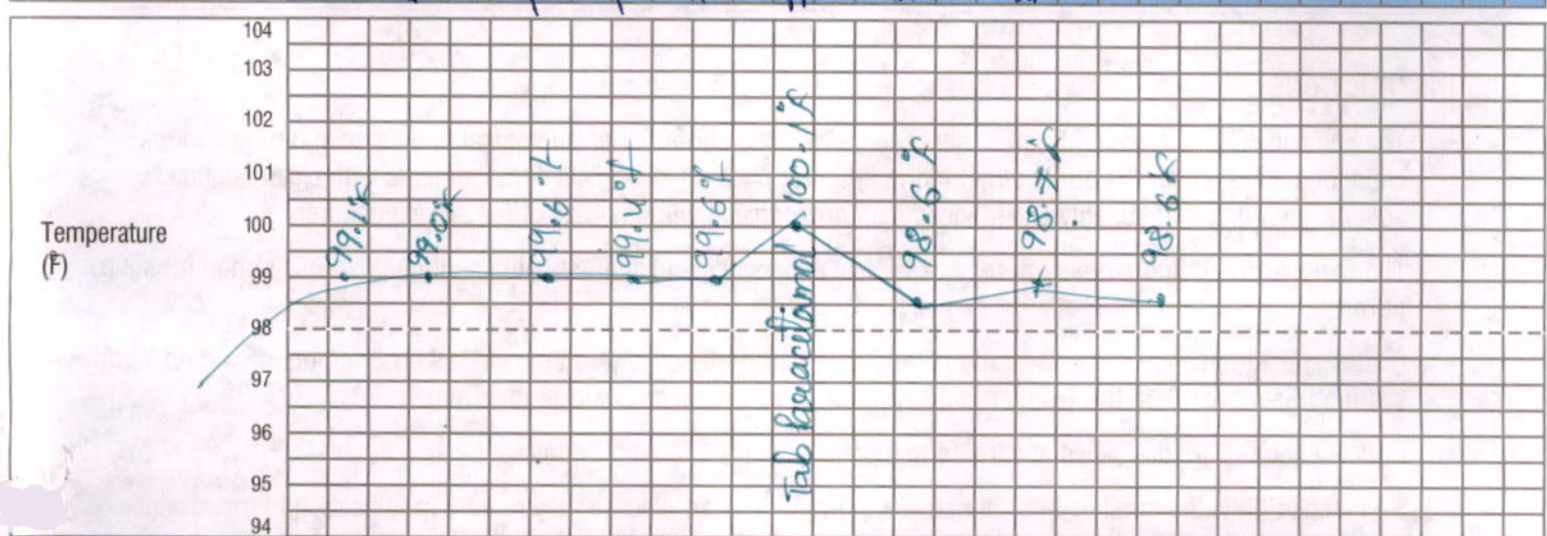 104
103
102
101
100
99
98
97
96
95
94
Temperature
(°F)
99.1°F
99.0°F
99.6°F
99.4°F
99.6°F
Tab Paracitamol 100.1°F
98.6°F
98.7°F
98.6°F